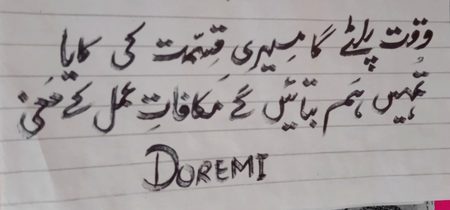 وقت پلٹے گا میری قِسمّت کی کایا
تُمہیں ہَم بتائیں گے مَکافاتِ عمل کے مَعٰنی
DOREMI